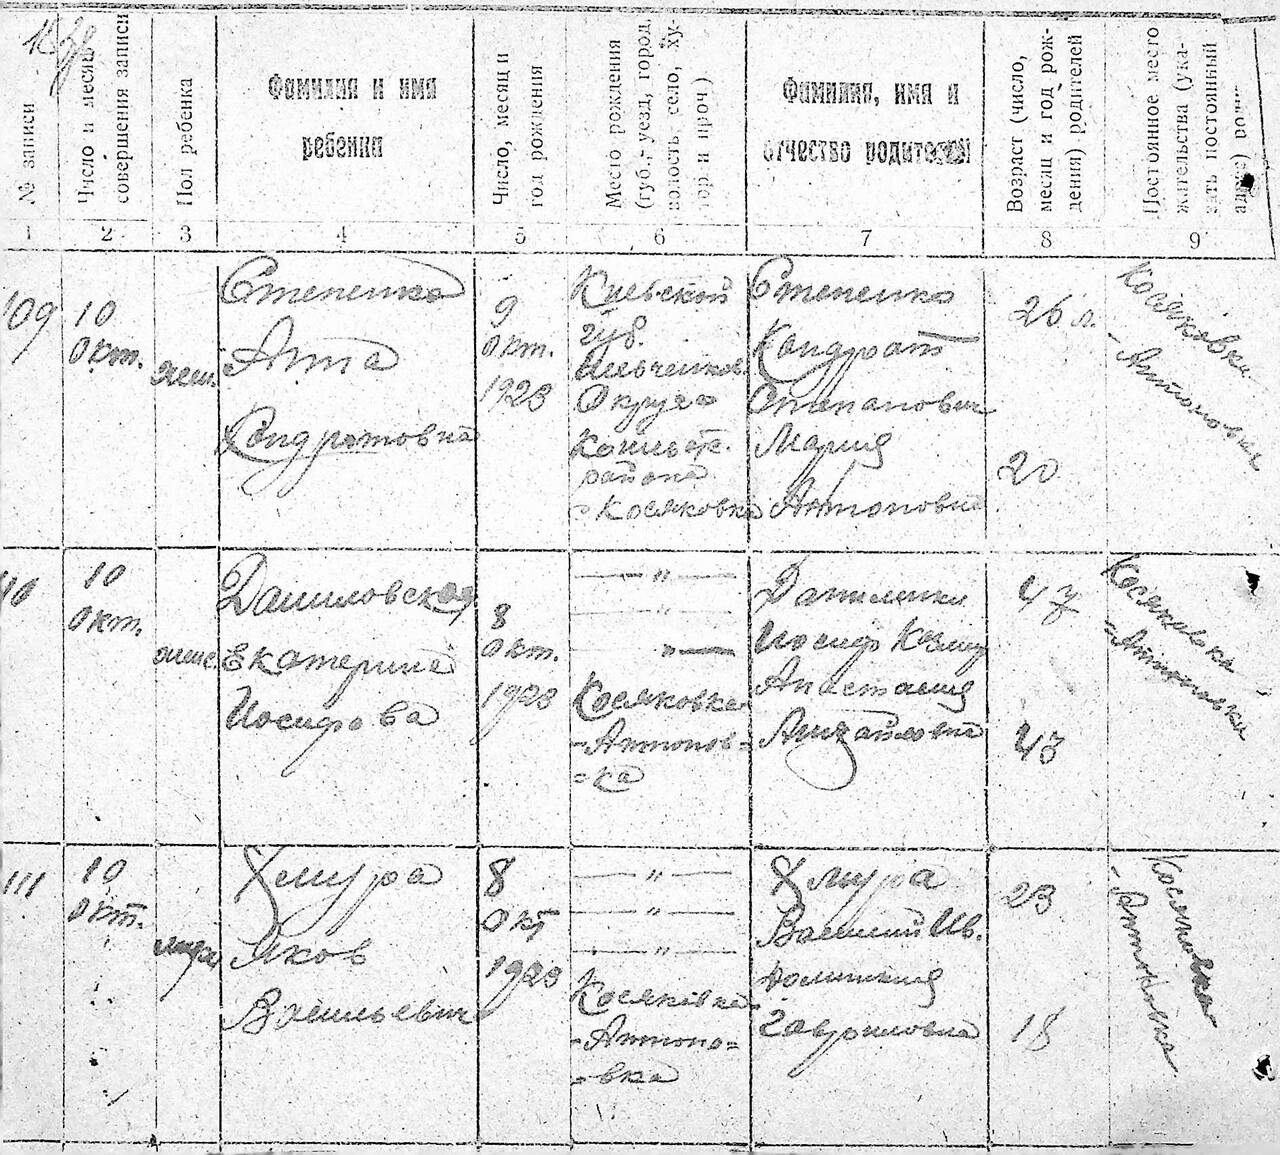 № записи
Число и месяц
совершения записи
Пол ребенка
Фамилия и имя
ребенка
Число, месяц и
год рождения
Место рождения
(губ., уезд, город,
волость, село, ху-
тор и проч.)
Фамилия, имя и
отчество родителей
Возраст (число,
месяц и год рож-
дения) родителей
Постоянное место
жительства (ука-
зать постоянный
адрес)
1 2 3 4 5 6 7 8 9
109
10
окт.
жен.
Степенко
Анна
Кондратовна
9
окт.
1923
Киевской
губ.
Шевченков.
Округа
района
Косяковка
Степенко
Кондрат
Степанович
Мария
Антоновна
26 л.
20
Косяковка
- Антоновка
110
10
окт.
женс.
Даниловская
Екатерина
Иосифова
8
окт.
1923
— " —
— " —
" —
Косяковка
- Антонов=
=ка
Иосиф
Анастасия
47
43
Косяковка
=Антоновка
111
10
окт.
Хмура
Яков
Васильевич
8
окт
1923
— " —
— " —
— " —
Косяківка
- Антоно=
=вка
Хмура
Василий Ив.
Гавриловна
23
18
Косяковка
- Антоновка